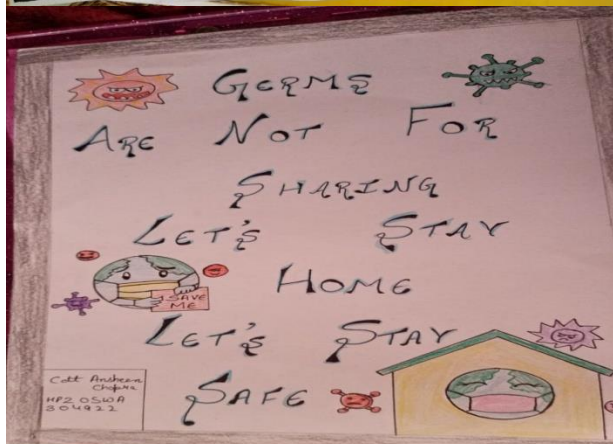 GERMS
ARE NOT FOR
SHARING
LET'S STAY
HOME
SAVE
ME
LET'S STAY
SAFE
Cdtt Ansheen
Chopra
HP2 OSWA
304922